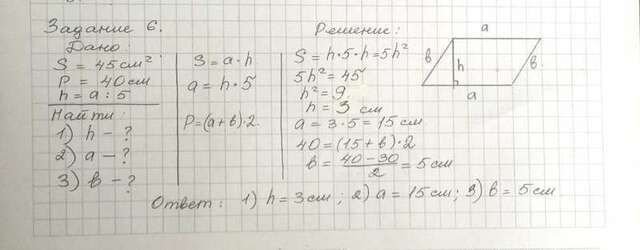 Задание 6.
Дано:
S = 45 см²
P = 40 см
h = a : 5
Найти:
1) h - ?
2) a - ?
3) b - ?
S = a · h
a = h · 5
P = (a + b) · 2
Решение:
S = h · 5 · h = 5h²
5h² = 45
h² = 9
h = 3 см
a = 3 · 5 = 15 см
40 = (15 + b) · 2
b = (40 - 30)/2 = 5 см
a
b h b
a
Ответ: 1) h = 3 см; 2) a = 15 см; 3) b = 5 см